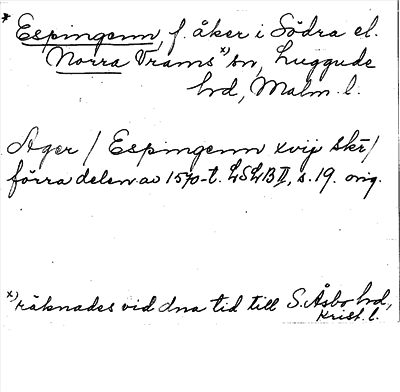 * Espingenn, f. åker i Södra el.
Norra Vrams x) sn, Luggude
hd, Malm. l.
Ager / Espingenn xvij skr /
förra delen av 1570-t. LSLB II, s. 19. orig.
x) räknades vid dna tid till S. Åsbo hd,
Krist. l.